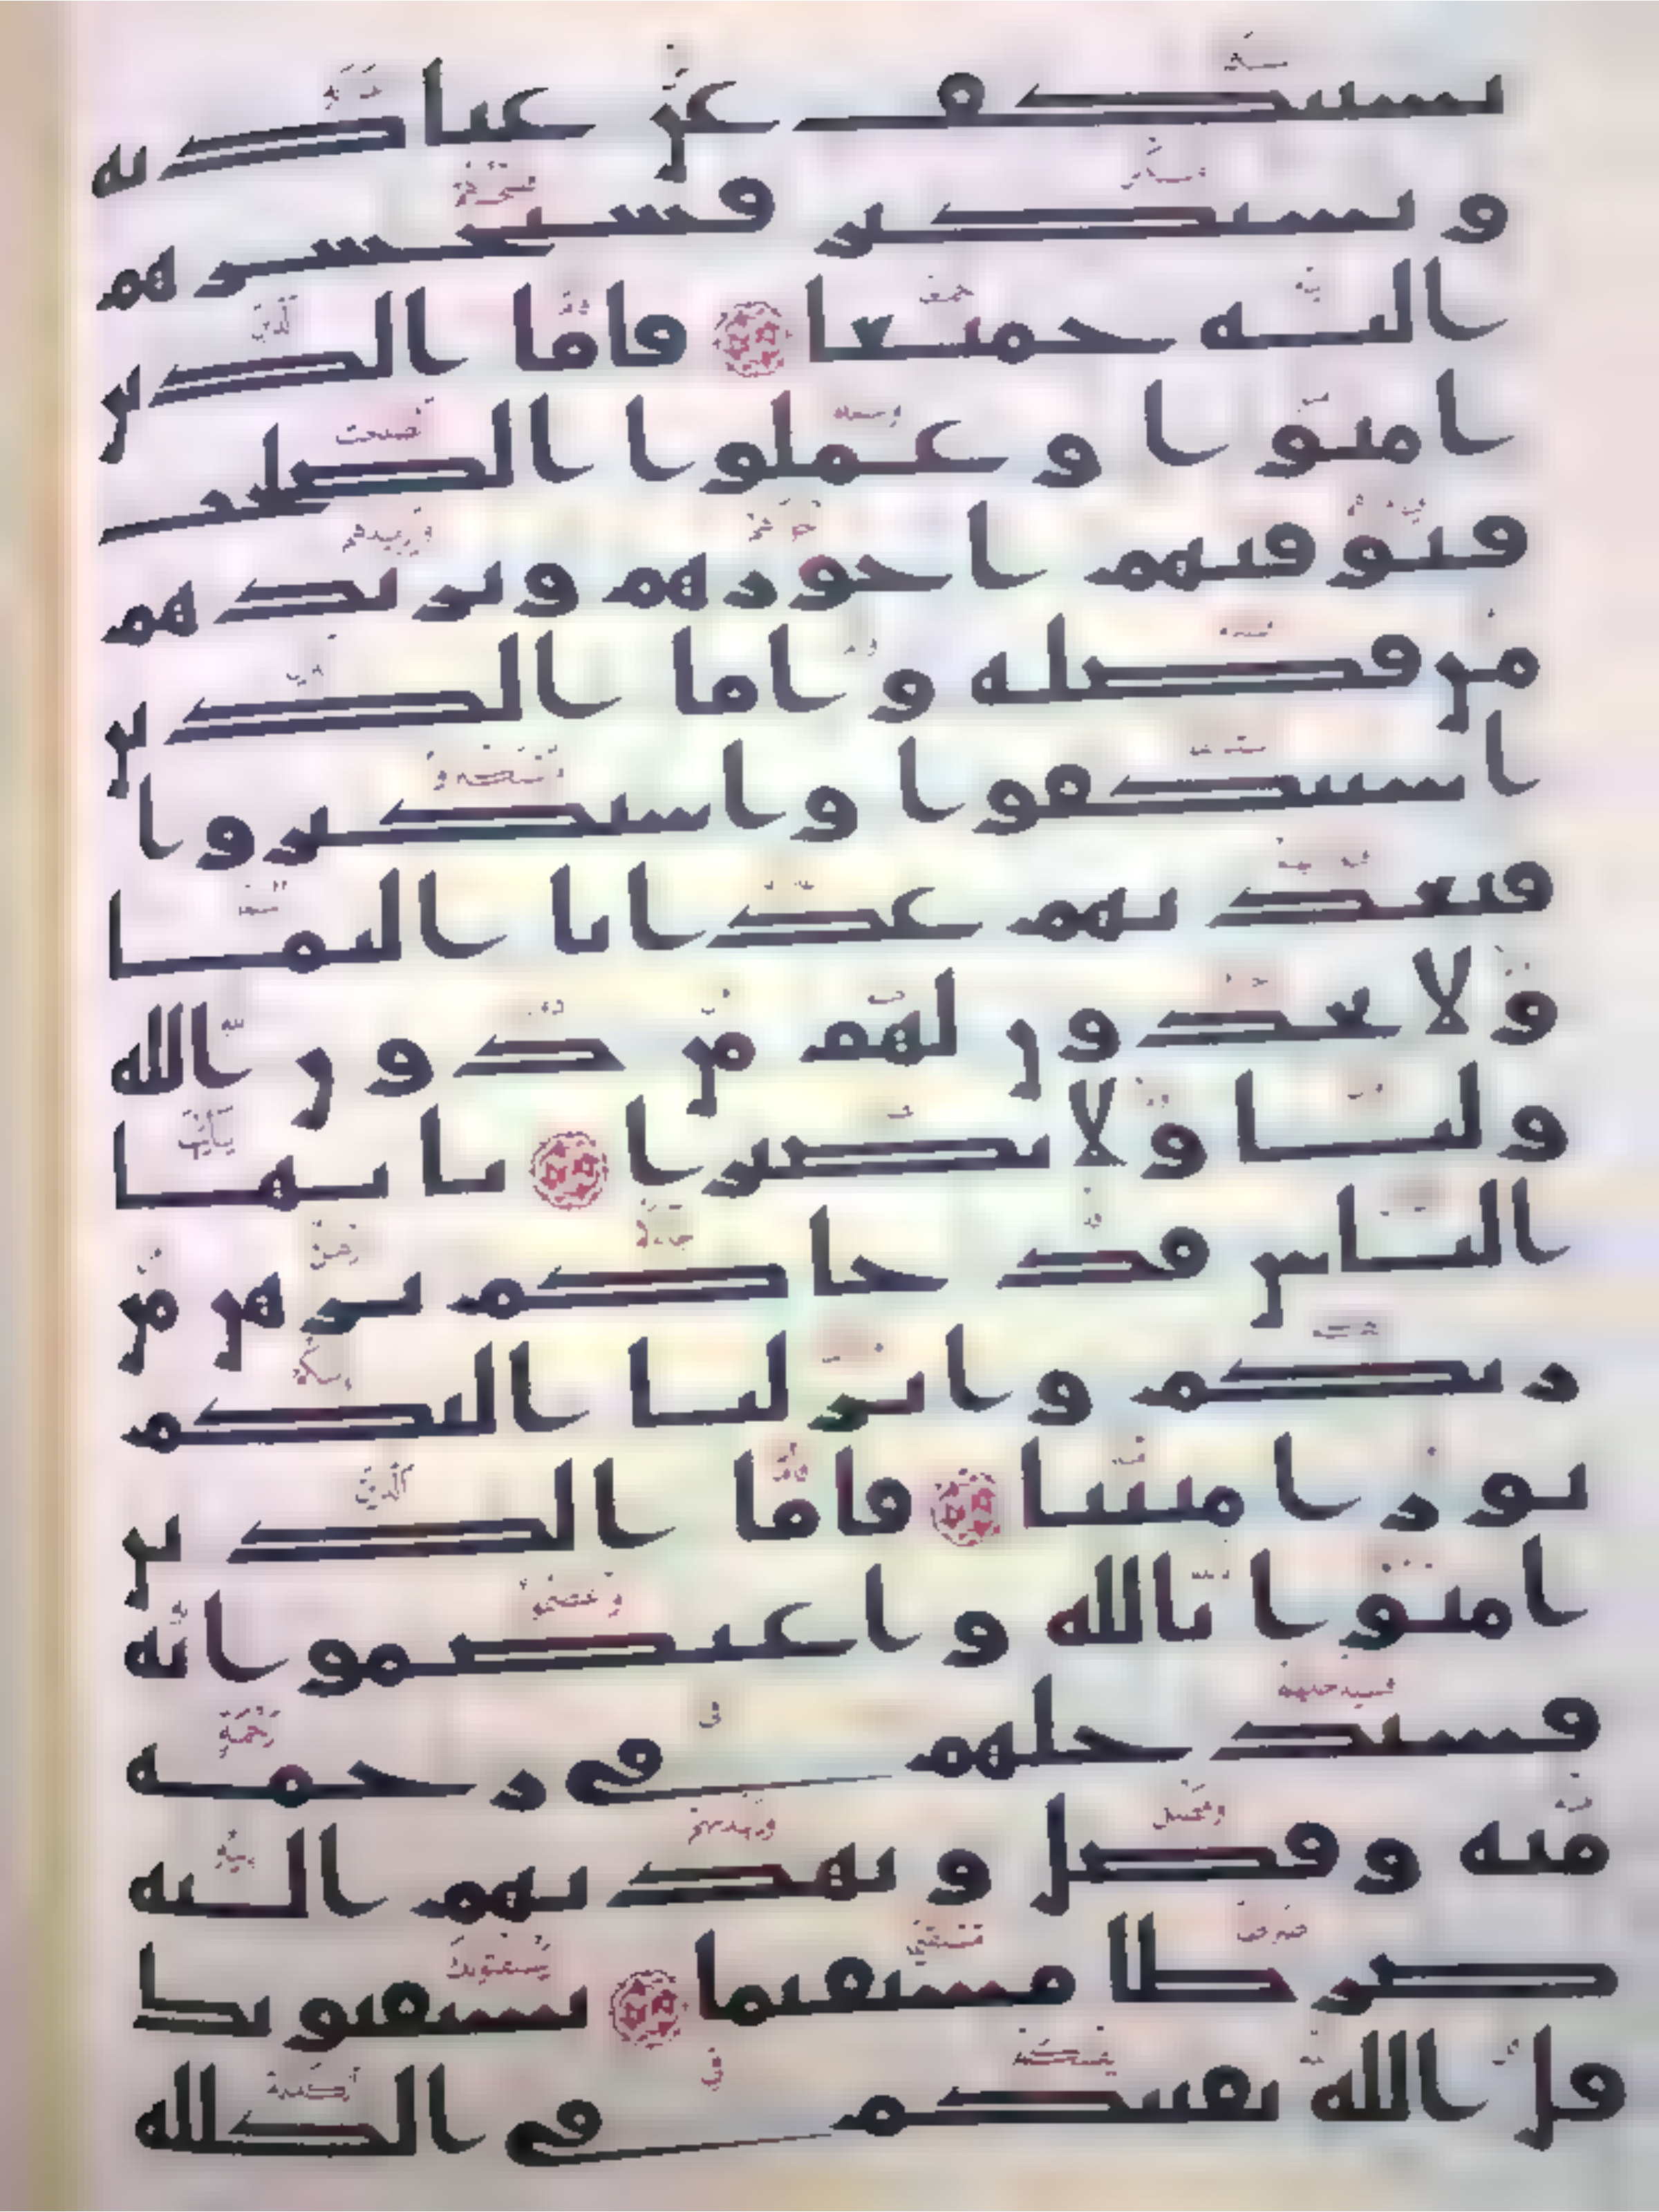 يستنكف عن عبادته
و يستكبر فسيحشرهم
اليه جميعا فاما الذين
امنوا و عملوا الصلحت
فيوفيهم اجورهم ويزيدهم
من فضله و اما الذين
استنكفوا و استكبروا
فيعذبهم عذابا اليما
ولا يجدون لهم من دون الله
وليا ولا نصيرا يايها
الناس قد جاكم برهن من
ربكم و انزلنا اليكم
نورا مبينا فاما الذين
امنوا بالله و اعتصموا به
فسيدخلهم في رحمة
منه و فضل و يهديهم اليه
صرطا مستقيما يستفتونك
قل الله يفتيكم في الكللة